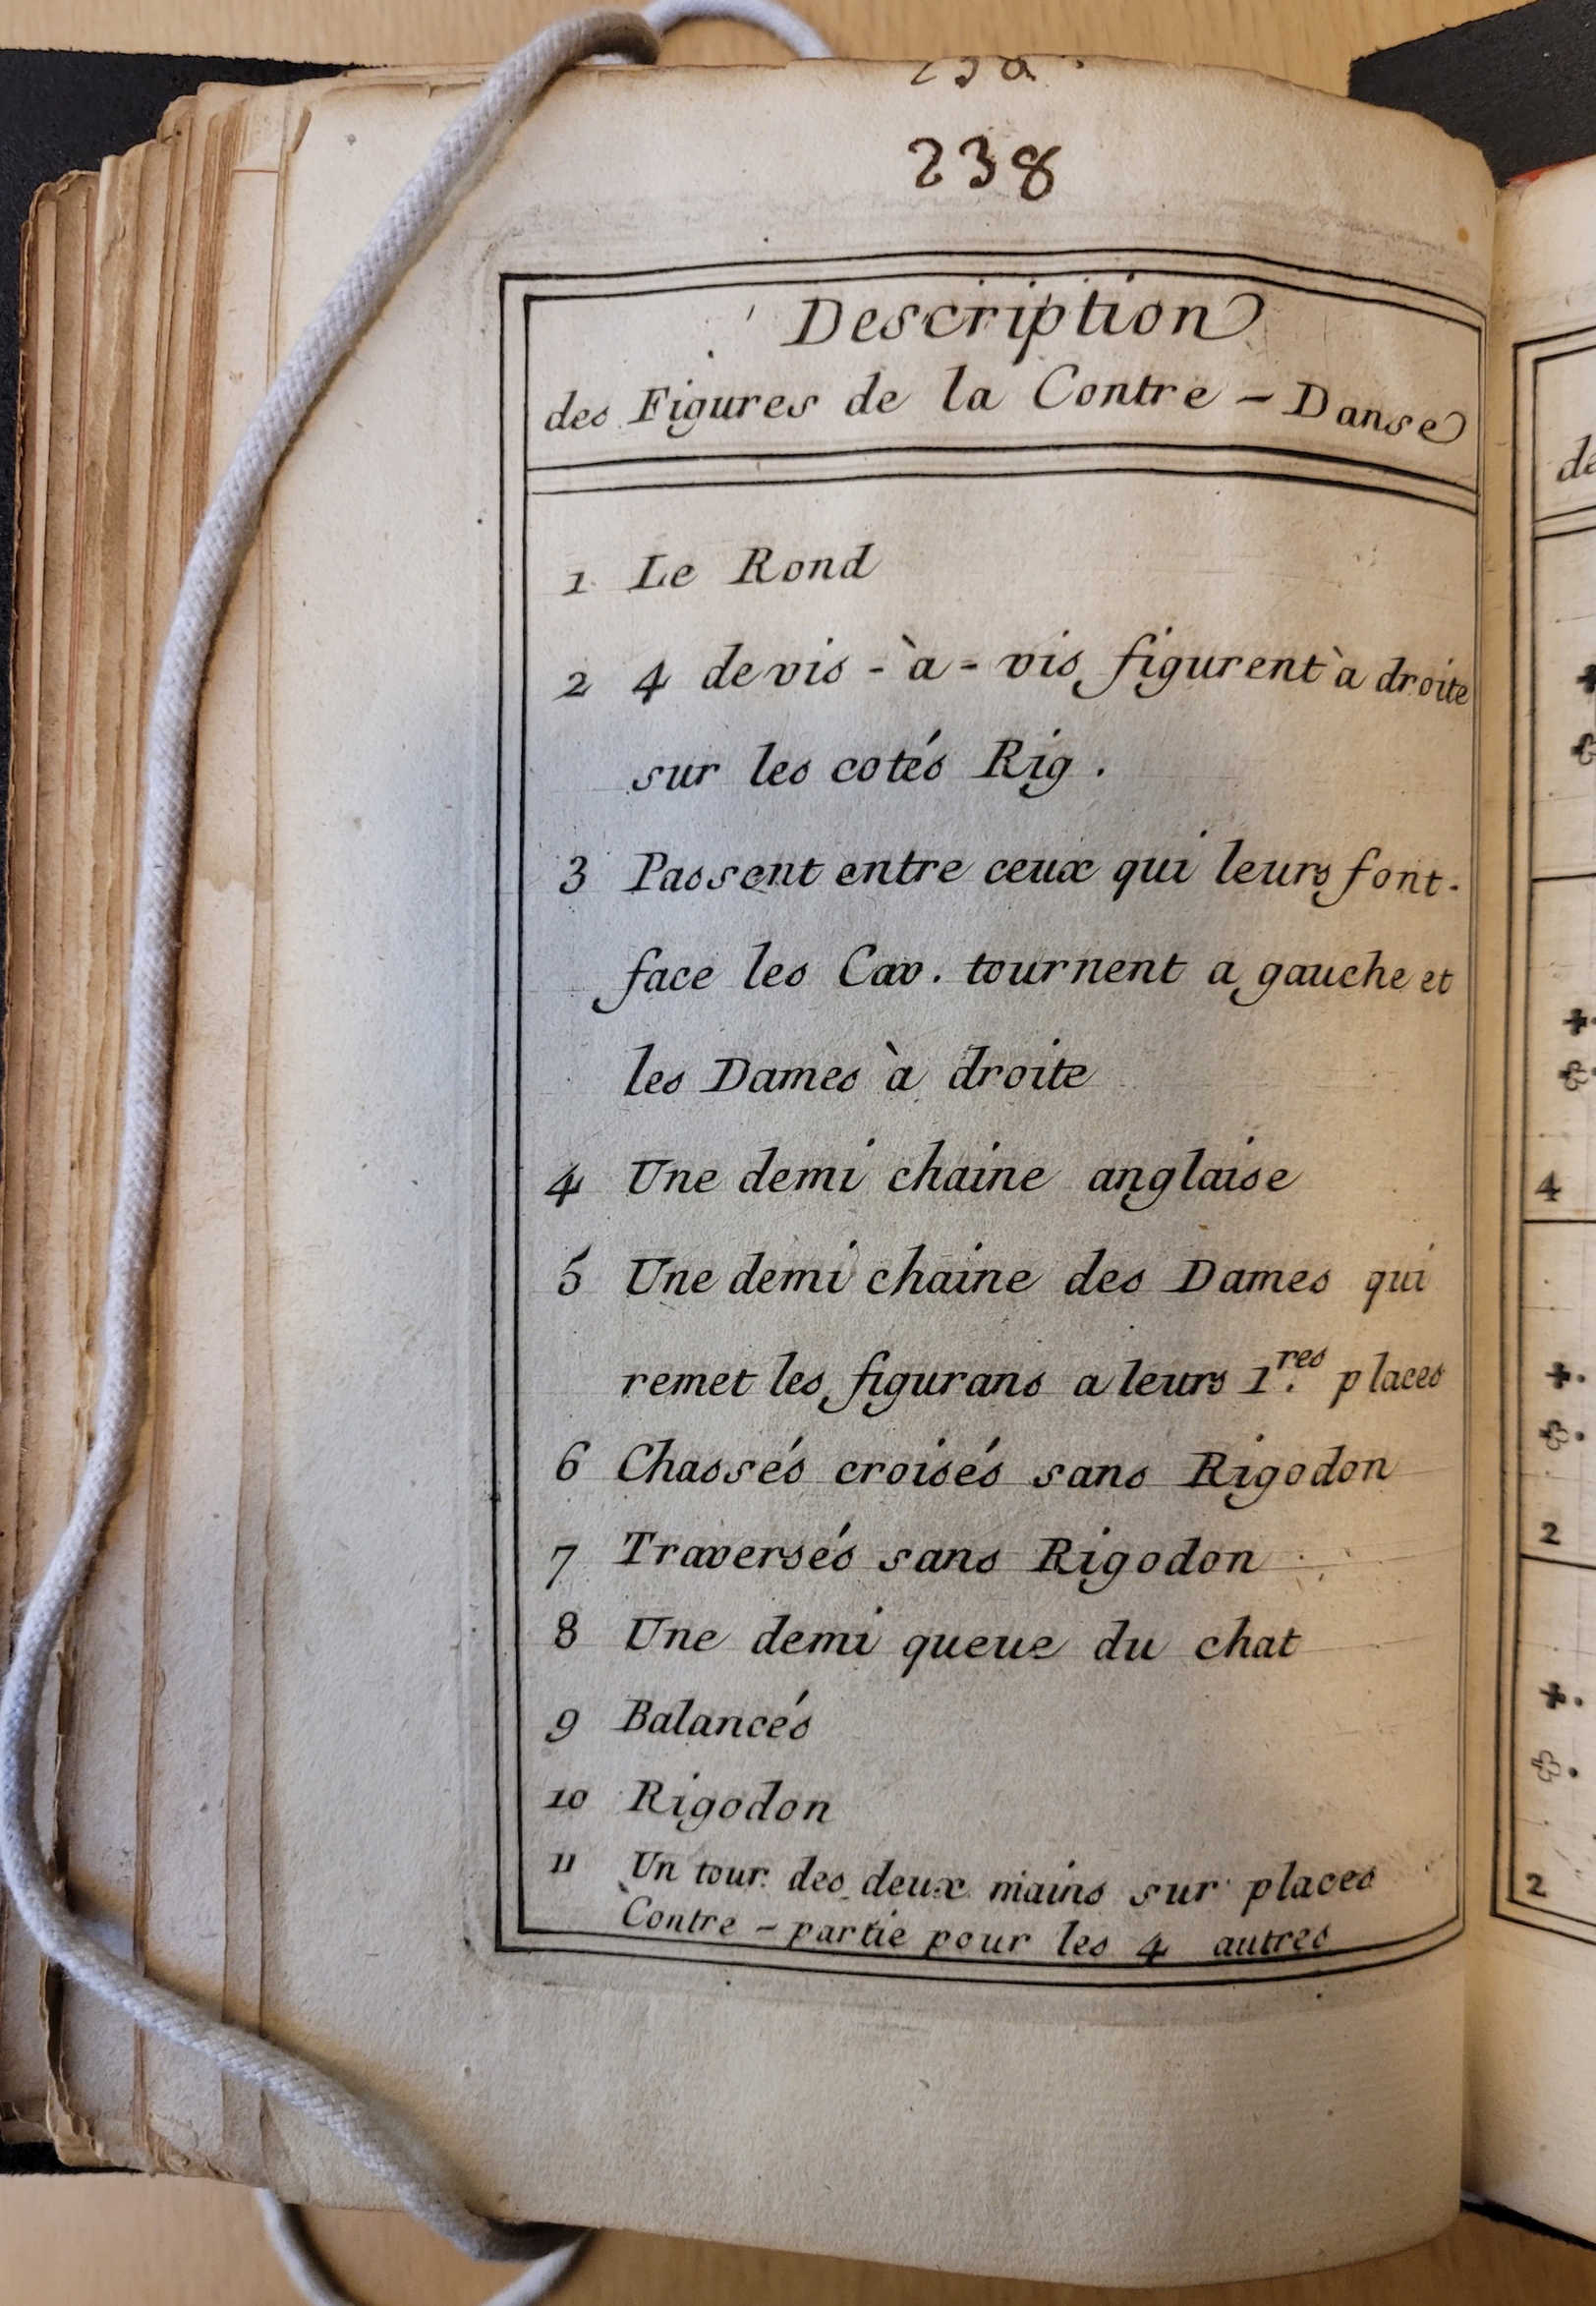 238
Description
des Figures de la Contre - Danse
1 Le Rond
2 4 de vis - à - vis figurent à droite
sur les cotés Rig .
3 Passent entre ceux qui leurs font-
face les Cav. tournent a gauche et
les Dames à droite
4 Une demi chaine anglaise
5 Une demi chaine des Dames qui
remet les figurans a leurs 1.res places
6 Chassés croisés sans Rigodon
7 Traversés sans Rigodon
8 Une demi queue du chat
9 Balancés
10 Rigodon
11 Un tour des deux mains sur places
Contre - partie pour les 4 autres
4
2
2